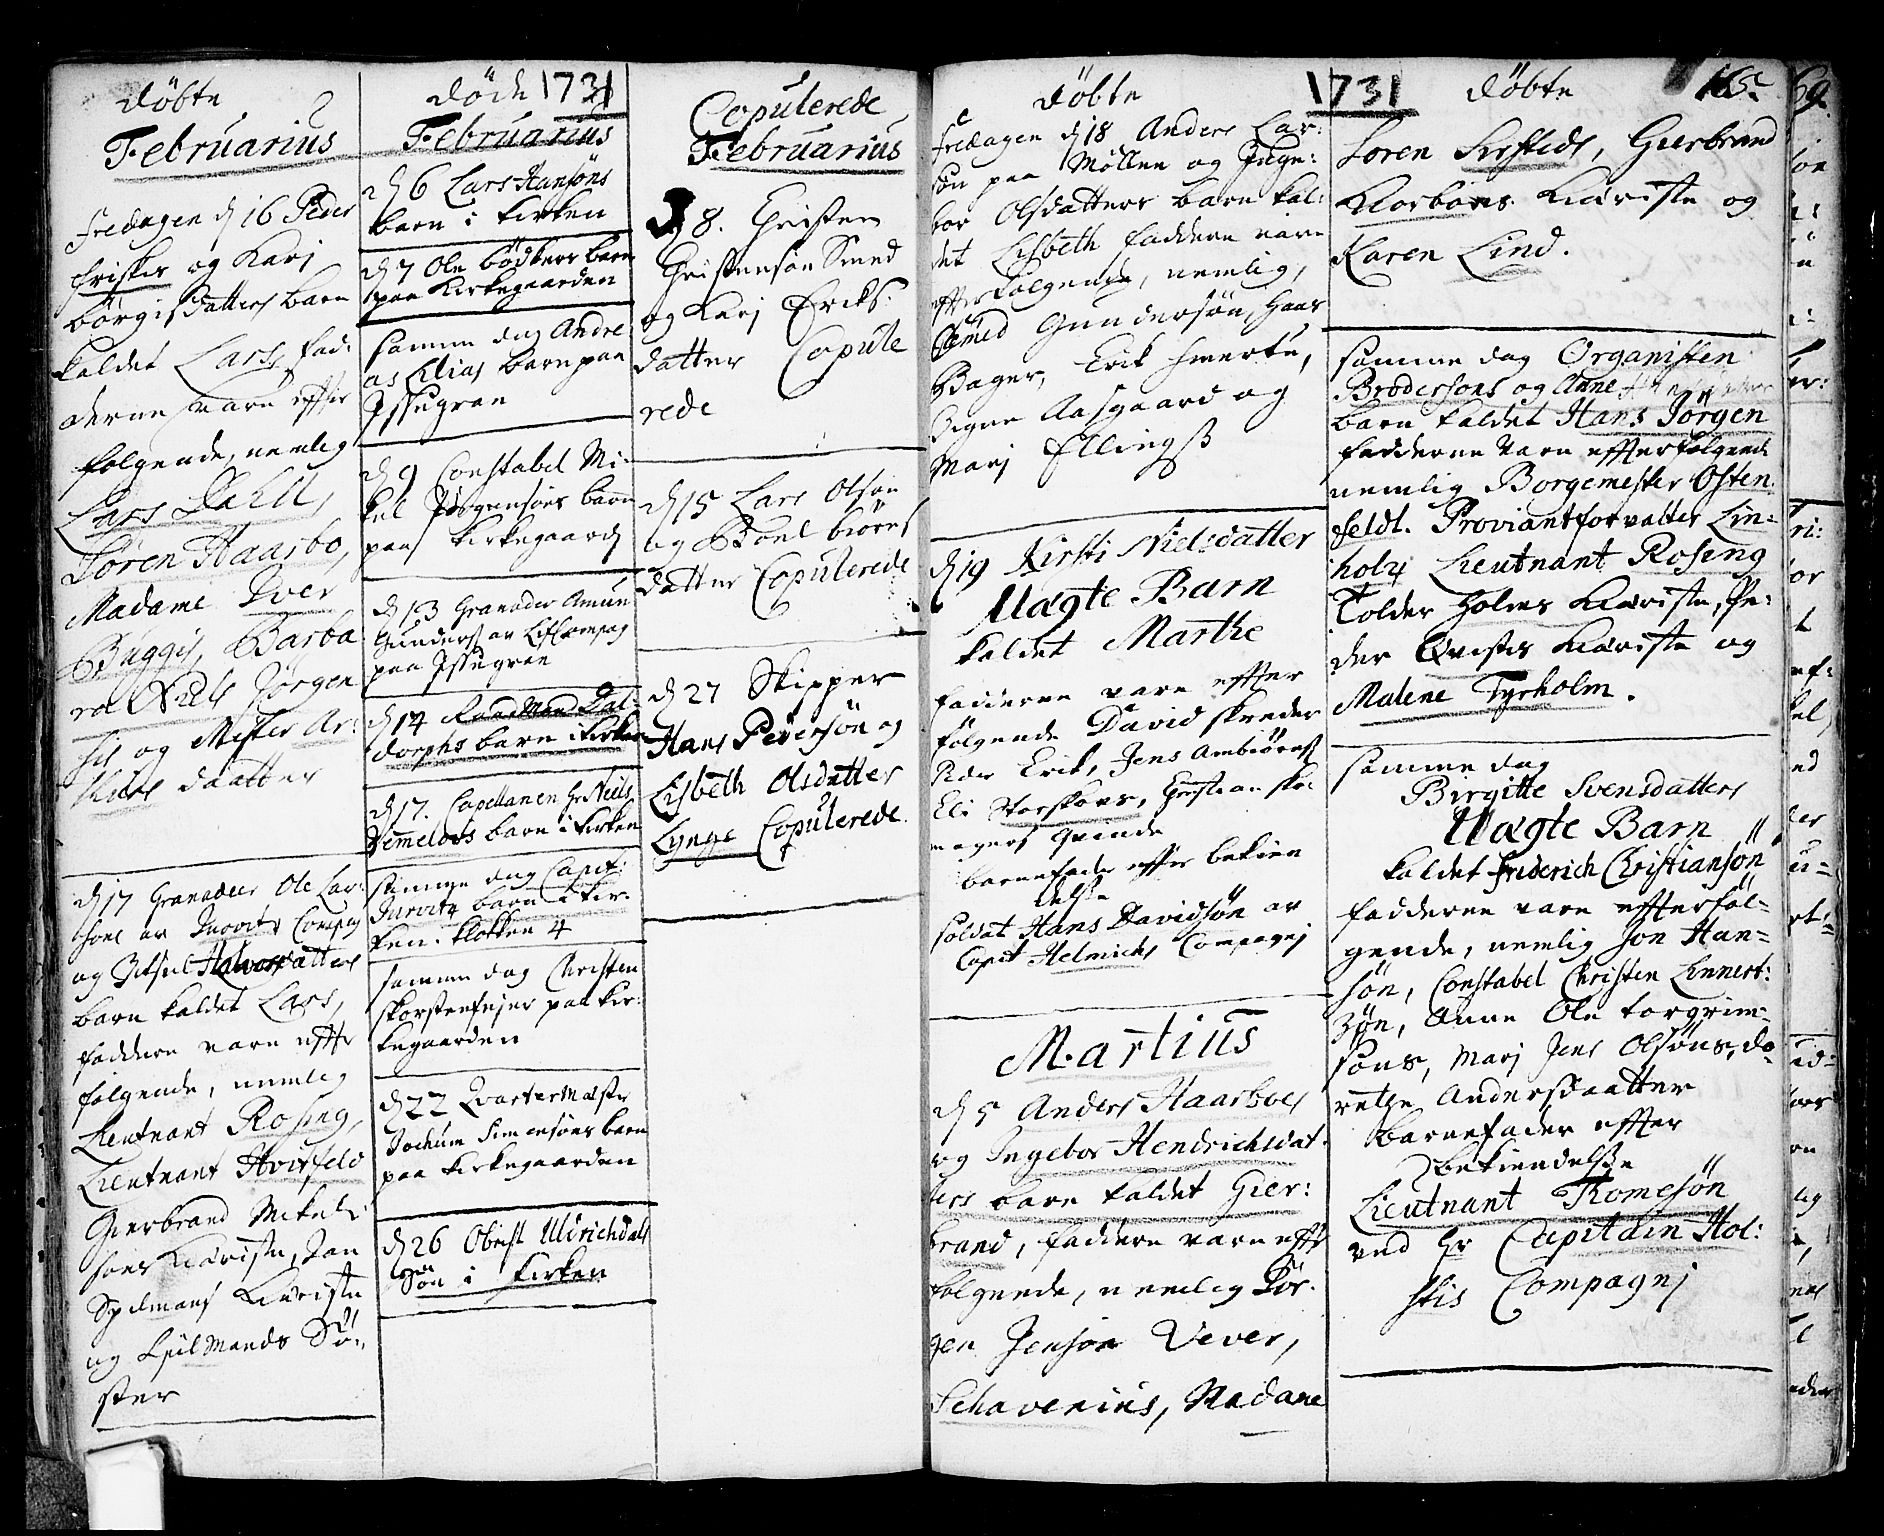 döbte
Februarius
fredagen d 16 Peder
frisker og Karj
börgisdatters barn
kaldet Lars fad:
derne vare effter
følgende, nemlig
Lars Dahll,
Sören Haarbo,
Madame Iver
Bugges, Barba
ra Niels Jörgen
sis og Mester Ar:
daatter
d 17 Granadeer Ole Lar:
sons av Jurvits Compag
og Zitsel Halvorsdatters
barn kaldet Lars,
faddere vare effter
fölgende, nemlig
Lieutnant Rosing,
Lieutnant Hvitfeld
Gierbrand Mikels
sons Kieriste, Jan
Spelmans Kieriste
og Spilmands Sö:
ster
döde 1731
Februarius
d 6 Lars Hansöns
barn i kirken
d 7 Ole bödkers barn
paa kirkegaarden
samme dag Andre
as Elias barn paa
Issugran
d 9 Constabel Mi:
kel Jörgensöns barn
paa kirkegaard
d 13 Granader Amun
Gunders av Lif Compag
paa Issugran
d 14 Raadmand Dal:
dorphs barn i kirken
d 17. Capellanen Hr Neils
Vemelovs barn i kirken
samme dag Capit:
Jurvits barn i kir:
ken. klokken 4
samme dag Christen
skorstenfejer paa kir:
kegaarden
d 22 Qvartermester
Jochum Simensöns barn
paa kirkegaarden
d 26 Obrist Uldrichdals
Sön i kirken
Copulerede
Februarius
d 8. Christen
Christensön Smed
og Karj Ericks:
datter Copule
rede
d 15 Lars Olsön
og Boel biörns
datter Copulerede
d 27 Skipper
Hans Pedersön og
Lisbeth Olsdatter
Lynge Copulerede
1731
döbte
fredagen d 18 Anders Lar:
sön paa Möllen og Inge:
bor Olsdatters barn kal:
det Lisbeth faddere vare
effterfölgende, nemlig,
Amud Gundersön, Hans
Bager, Erik smerte,
Signe Aasgaard og
Marj Ellings
d 19 Kirsti Nielsdatter
Uægte Barn
kaldet Marthe
fadderne vare effter
fölgende David skreder
Peder Erick, Jens Ambiörns
Eli Storskovs, Christian sko:
magers qvinde
barnefader effter bekien
delse
soldat Hans Davidsön av
Capit Helmichs Compagnj
Martius
d 5 Anders Haarboes
og Ingebor Hendrichsdat:
ters barn kaldet Gier:
brand, faddere vare effter
følgende, nemlig Sör:
gen Jensön Vever,
Schavenius, Madame
döbte 165
Soren Sersteds, Gierbrand
Klorboes Kieriste og
Karen Lind.
samme dag Organisten
Brödersons og Anne
barn kaldet Hans Jörgen
fadderne vare effterfölgende
nemlig Borgemester Osten
feldt. Proviantforvalter Lin:
holz Lieutnant Rosing
Tolder Holms Kieriste, Pe:
der Qvistes Kieriste og
Malene Tyrholm.
samme dag
Birgitte Svensdatters
Uægte Barn
kaldet Friderich Christiansön
fadderne vare effterföl=
gende, nemlig Jon Han=
sön, Constabel Christen Linnert:
zön, Anne Ole torgrim=
söns, Marj Jens Olsöns, do:
rethe Andersdaatter
barnefader effter
bekiendelsse
Lieutnant Thomesön
ved Hr Capitain Hol:
stis Compagnj
69.